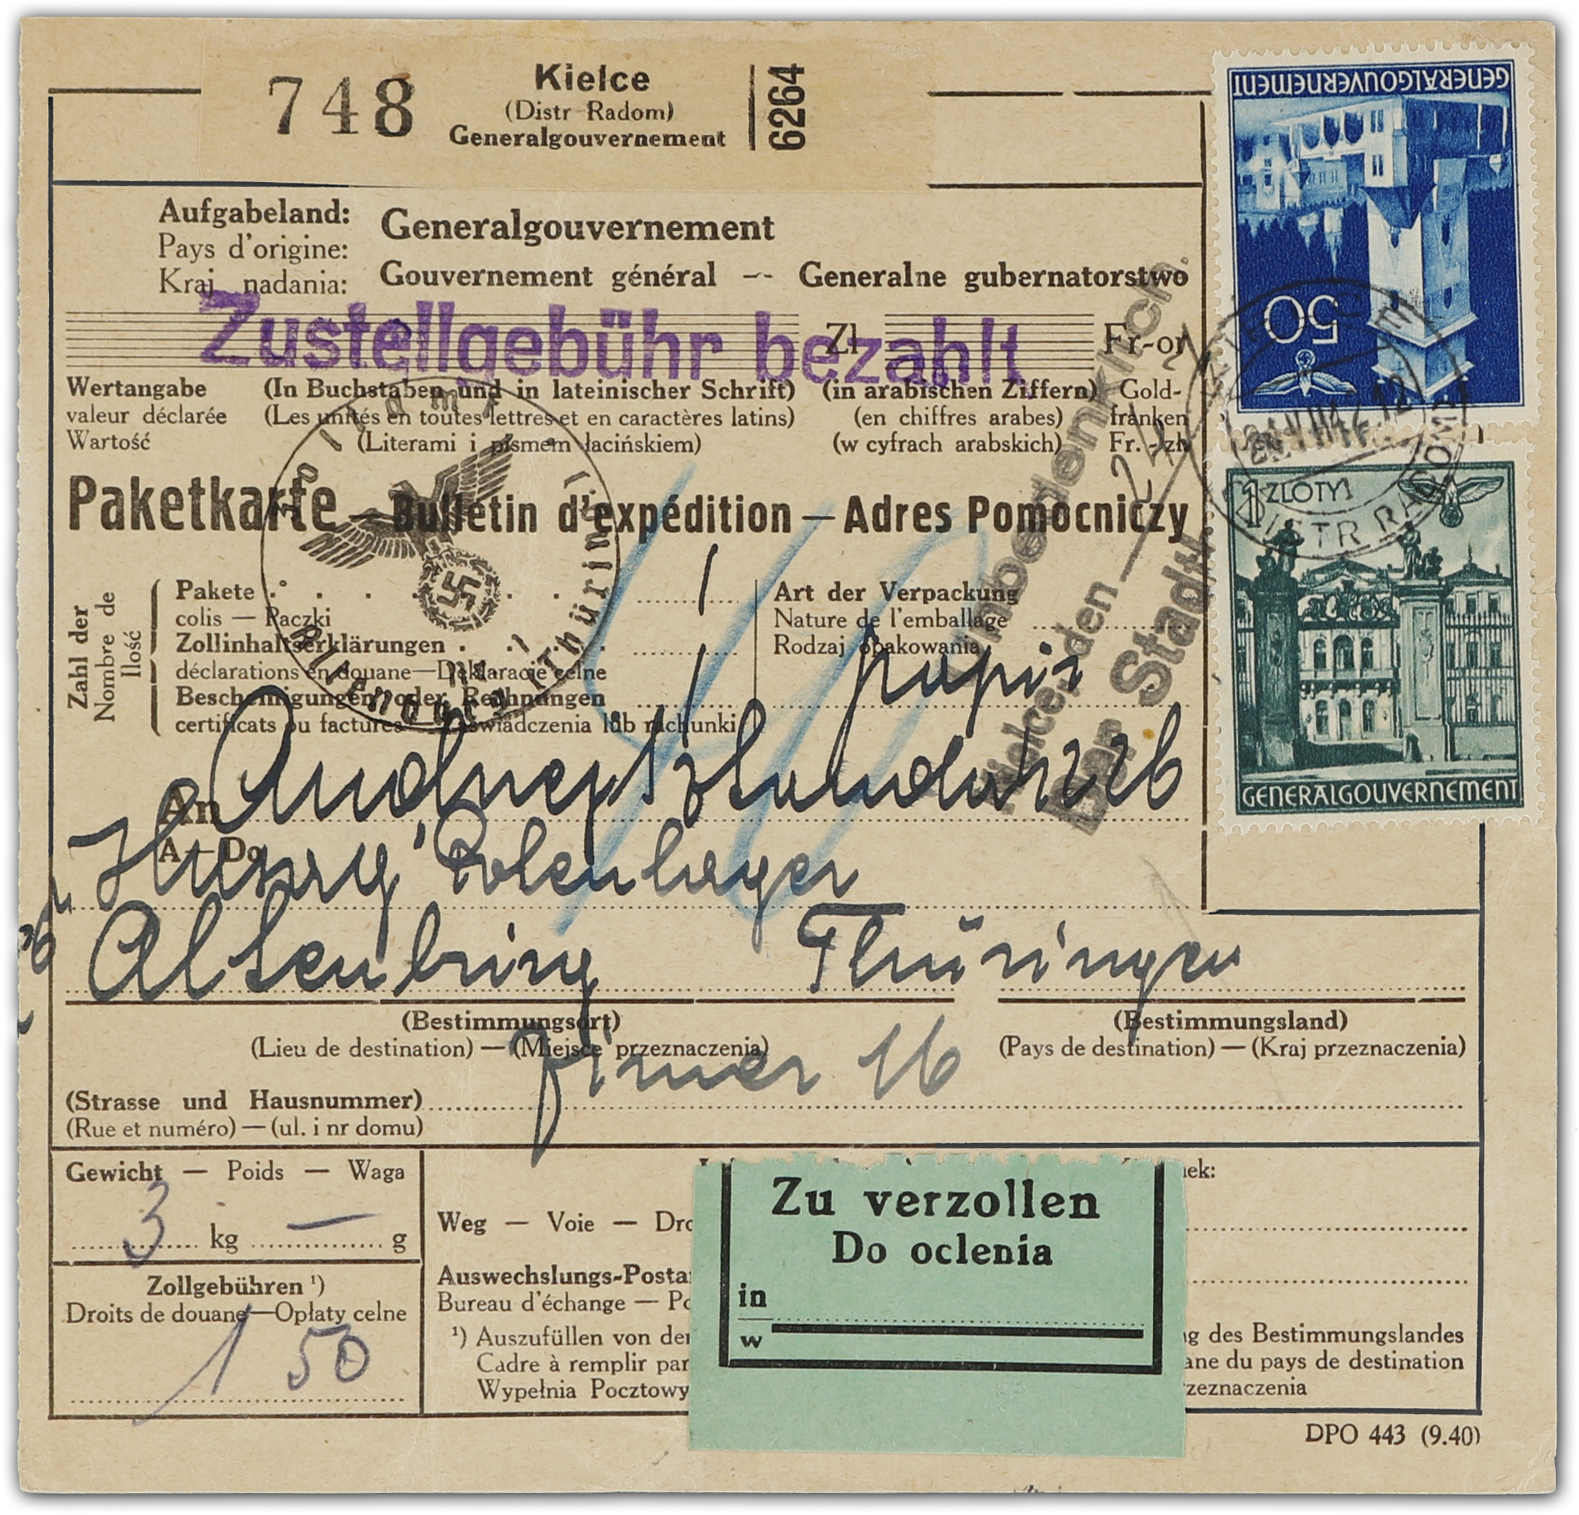 748
Kielce
(Distr Radom)
Generalgouvernement
6264
GENERALGOUVERNEMENT
50
Aufgabeland:
Pays d'origine:
Kraj nadania:
Generalgouvernement
Gouvernement général -- Generalne gubernatorstwo
Zustellgebühr bezahlt
Zł
Fr-or
Wertangabe (In Buchstaben und in lateinischer Schrift) (in arabischen Ziffern) Gold-
valeur déclarée (Les unités en toutes lettres et en caractères latins) (en chiffres arabes) franken
Wartość (Literami i pismem łacińskiem) (w cyfrach arabskich) Fr. - zł
Paketkarte — Bulletin d'expédition — Adres Pomocniczy
KIELCE
DISTR RADOM
1 ZŁOTY
GENERALGOUVERNEMENT
Zollamt
Altenburg (Thüringen)
Unbedenklich.
Kielce, den
Der Stadth.
Zahl der
Nombre de
Ilość
Pakete 1
colis — Paczki
Zollinhaltserklärungen 1
déclarations en douane—Deklaracje celne
Bescheinigungen oder Rechnungen
certificats ou factures — Poświadczenia lub rachunki
Art der Verpackung
Nature de l'emballage
Rodzaj opakowania
papir
40
An
A — Do
Altenburg Thüringen
(Bestimmungsort) (Bestimmungsland)
(Lieu de destination) — (Miejsce przeznaczenia) (Pays de destination) — (Kraj przeznaczenia)
16
(Strasse und Hausnummer)
(Rue et numéro) — (ul. i nr domu)
Gewicht — Poids — Waga
3 kg — g
Zollgebühren ¹)
Droits de douane—Opłaty celne
1 50
Weg — Voie — Dro
Auswechslungs-Posta
Bureau d'échange — Po
¹) Auszufüllen von der
Cadre à remplir par
Wypełnia Pocztowy
Zu verzollen
Do oclenia
in
w
ek:
g des Bestimmungslandes
ane du pays de destination
zeznaczenia
DPO 443 (9.40)